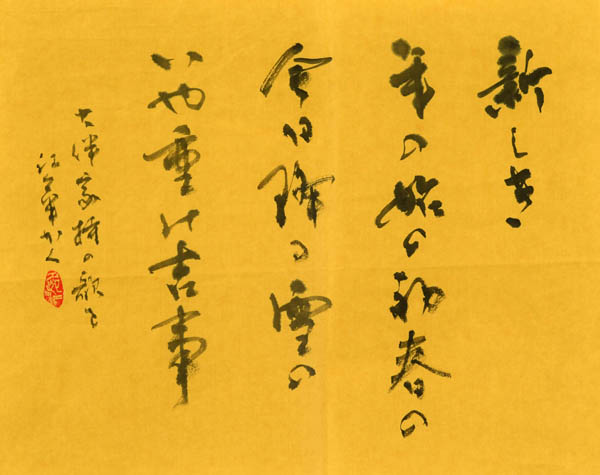 新しき
年の始の初春の
今日降る雪の
いや重け吉事
大伴家持の歌を
かく